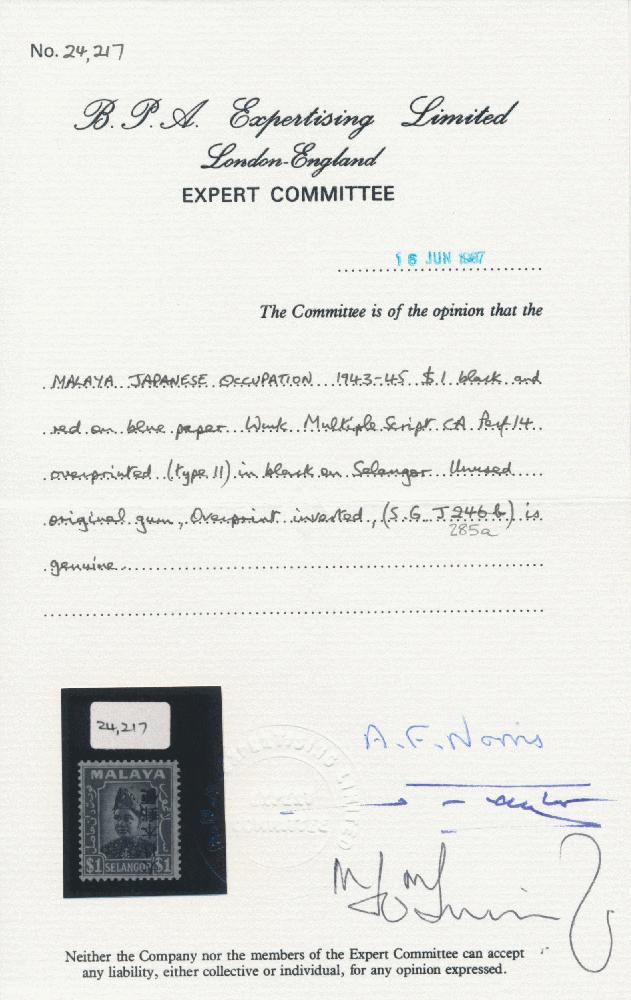 No. 24,217
B.P.A. Expertising Limited
London-England
EXPERT COMMITTEE
16 JUN 1987
The Committee is of the opinion that the
MALAYA JAPANESE OCCUPATION 1943-45 $1 black and
red on blue paper Wmk Multiple Script CA Perf 14
overprinted (type 11) in black on Selangor Unused
original gum, Overprint inverted, (S.G. J246b) is
285a
genuine
24,217
MALAYA
$1 SELANGOR $1
A.F. Norris
Neither the Company nor the members of the Expert Committee can accept
any liability, either collective or individual, for any opinion expressed.